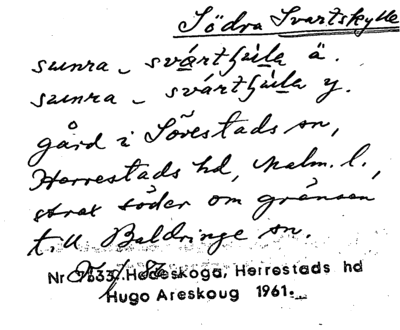 Södra Svartskylle
sunra - svártſjùla ä.
sunra - svártſjùla y.
gård i Sövestads sn,
Herrestads hd, Malm. l.,
strax söder om gränsen
t.ll Baldringe sn.
Nr Hedeskoga, Herrestads hd
Hugo Areskoug 1961.